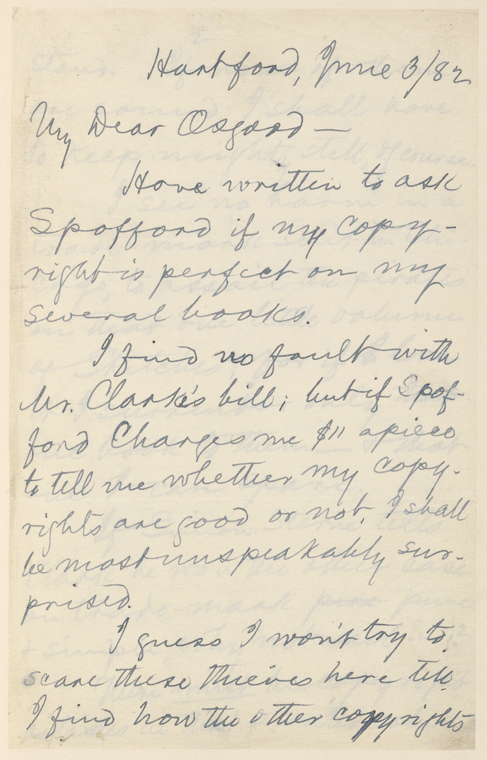 Hartford, June 3/82
My Dear Osgood —
Have written to ask
Spofford if my copy-
right is perfect on my
several books.
I find no fault with
Mr. Clark's bill; but if Spof-
ford charges me $11 apiece
to tell me whether my copy-
rights are good or not, I shall
be most unspeakably sur-
prised.
I guess I won't try to
scare these thieves here till
I find how the other copyrights